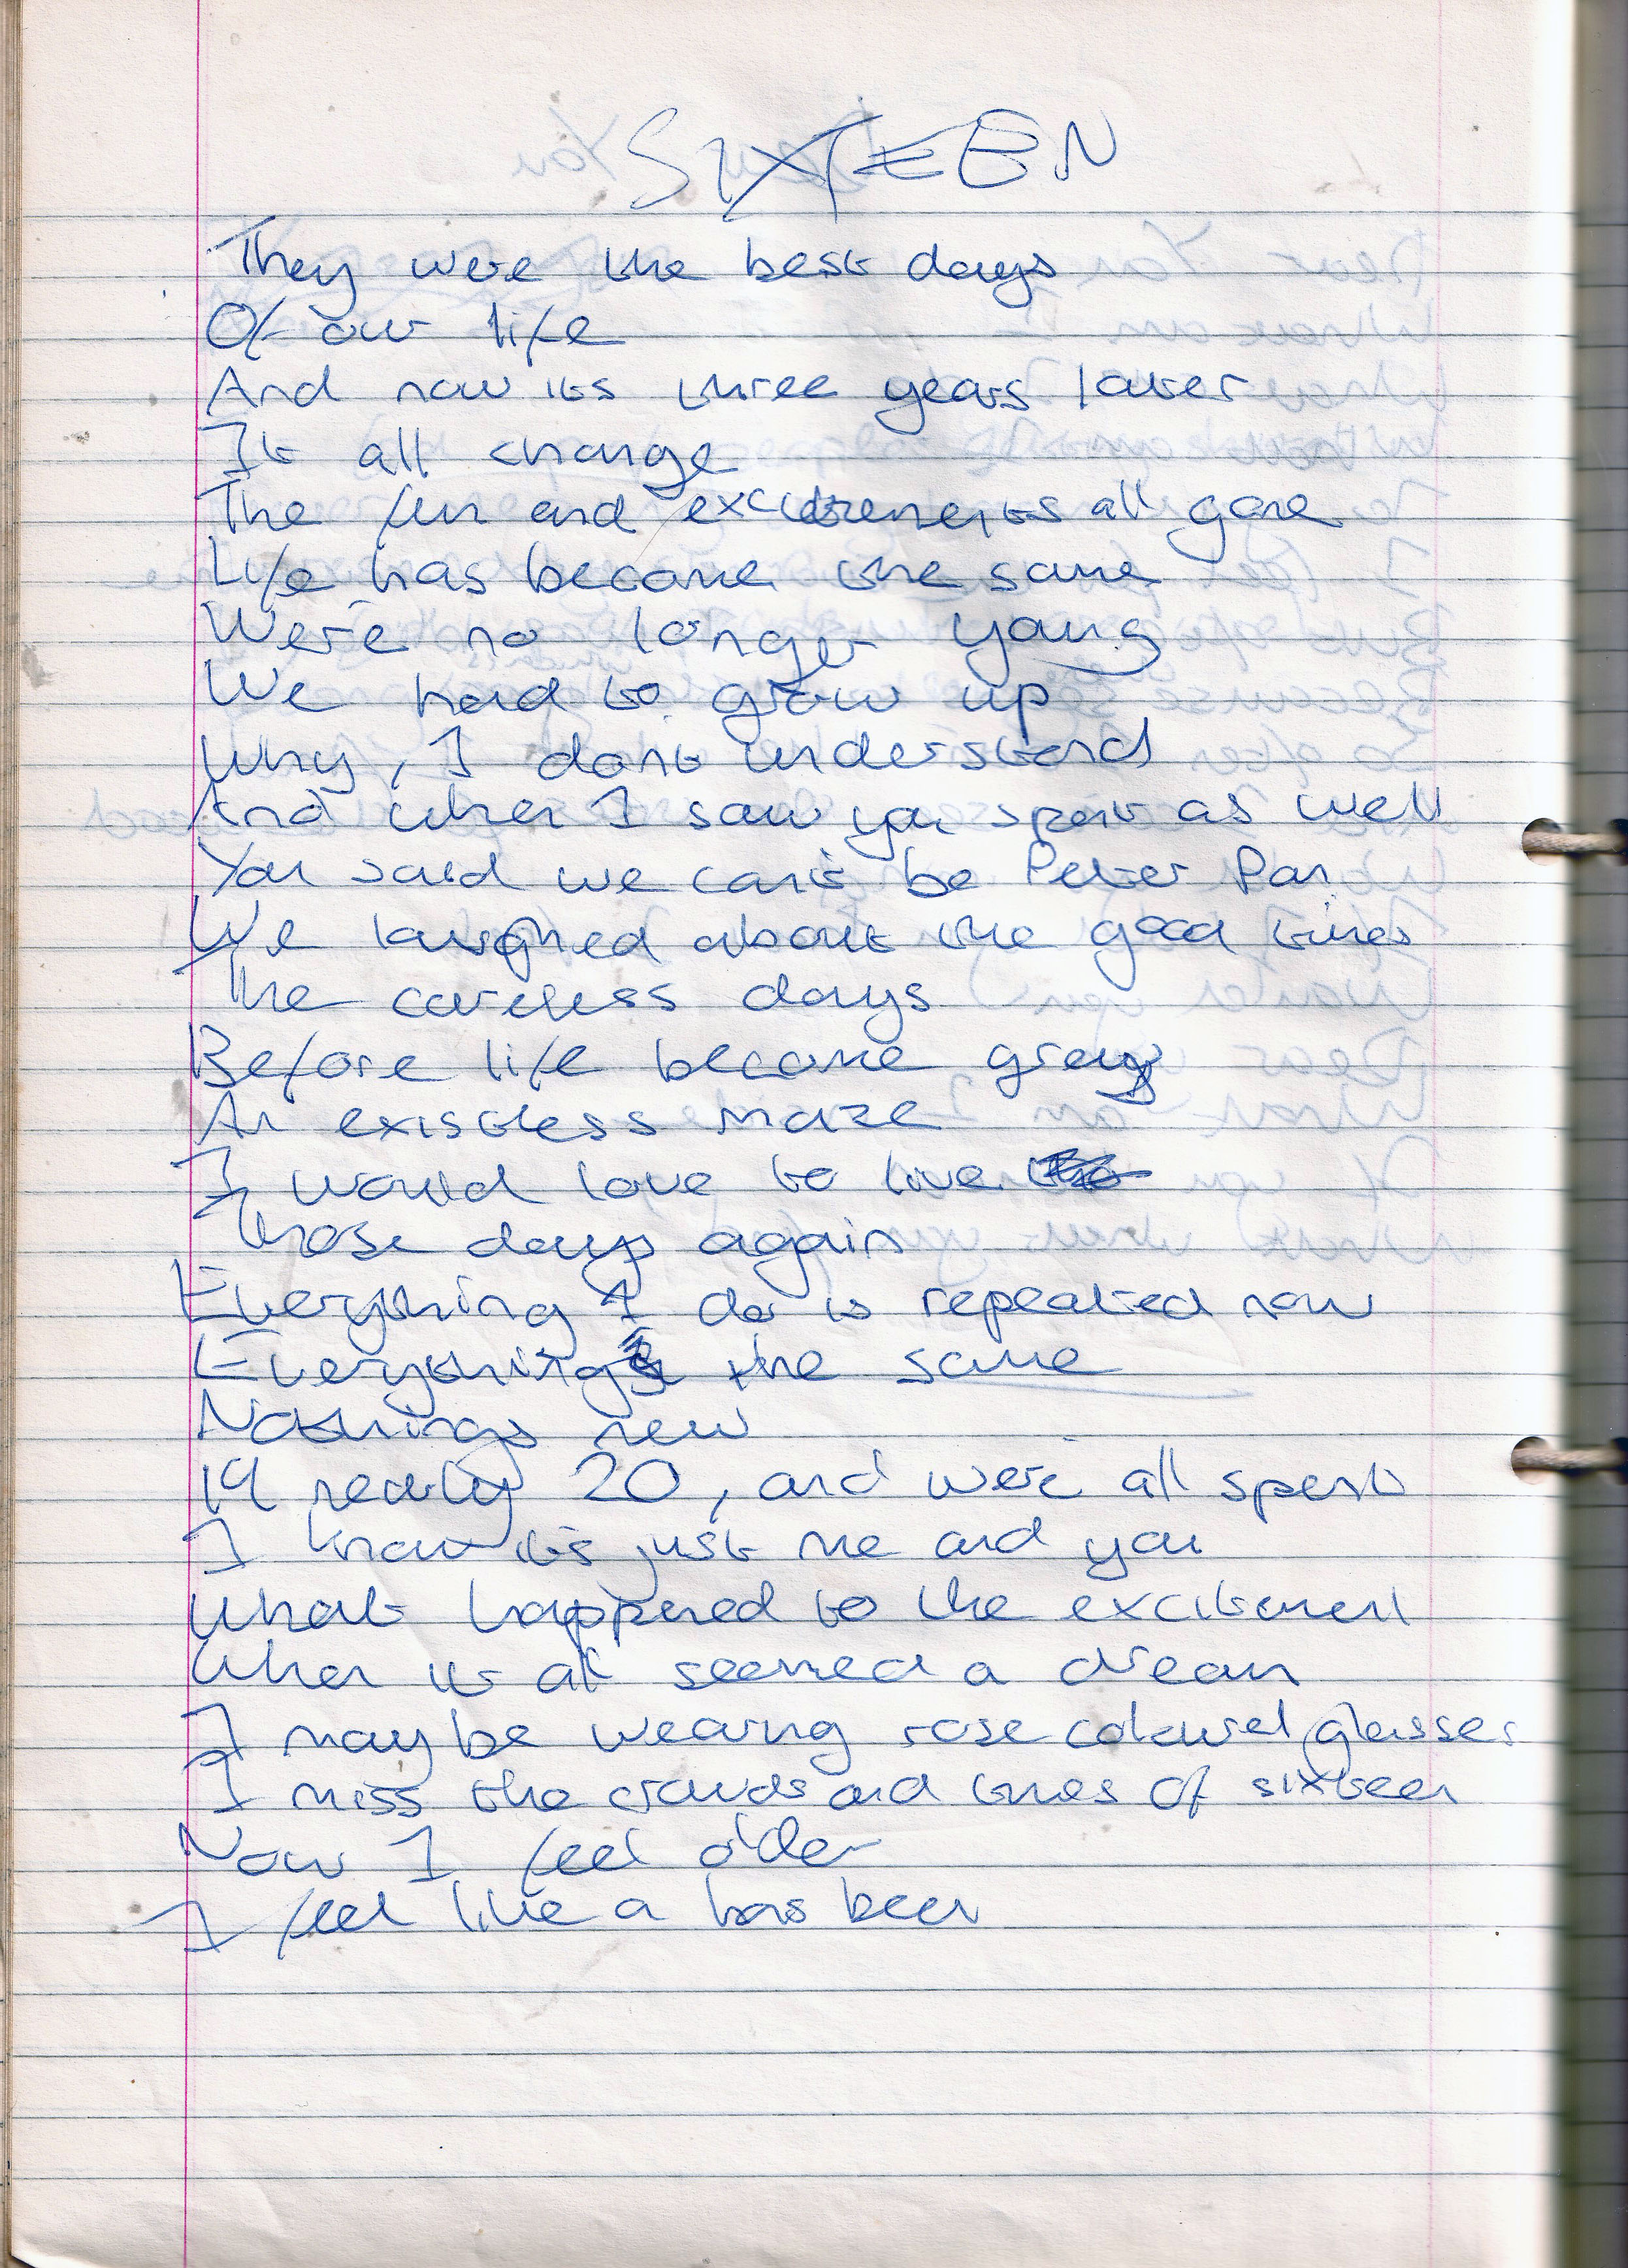 SIXTEEN
They were the best days
Of our life
And now its three years later
It all change
The fun and excitement's all gone
Life has become the same
We're no longer young
We had to grow up
Why, I dont understand
And when I saw you spent as well
You said we can't be Peter Pan
We laughed about the good times
The careless days
Before life became grey
An existless maze
I would love to live
Those days again
Everything I do is repeated now
Everythings the same
Nothings new
19 nearly 20, and we're all spent
I know its just me and you
What happened to the excitment
When it all seemed a dream
I may be wearing rose coloured glasses
I miss the crowds and times of sixteen
Now I feel older
I feel like a has been